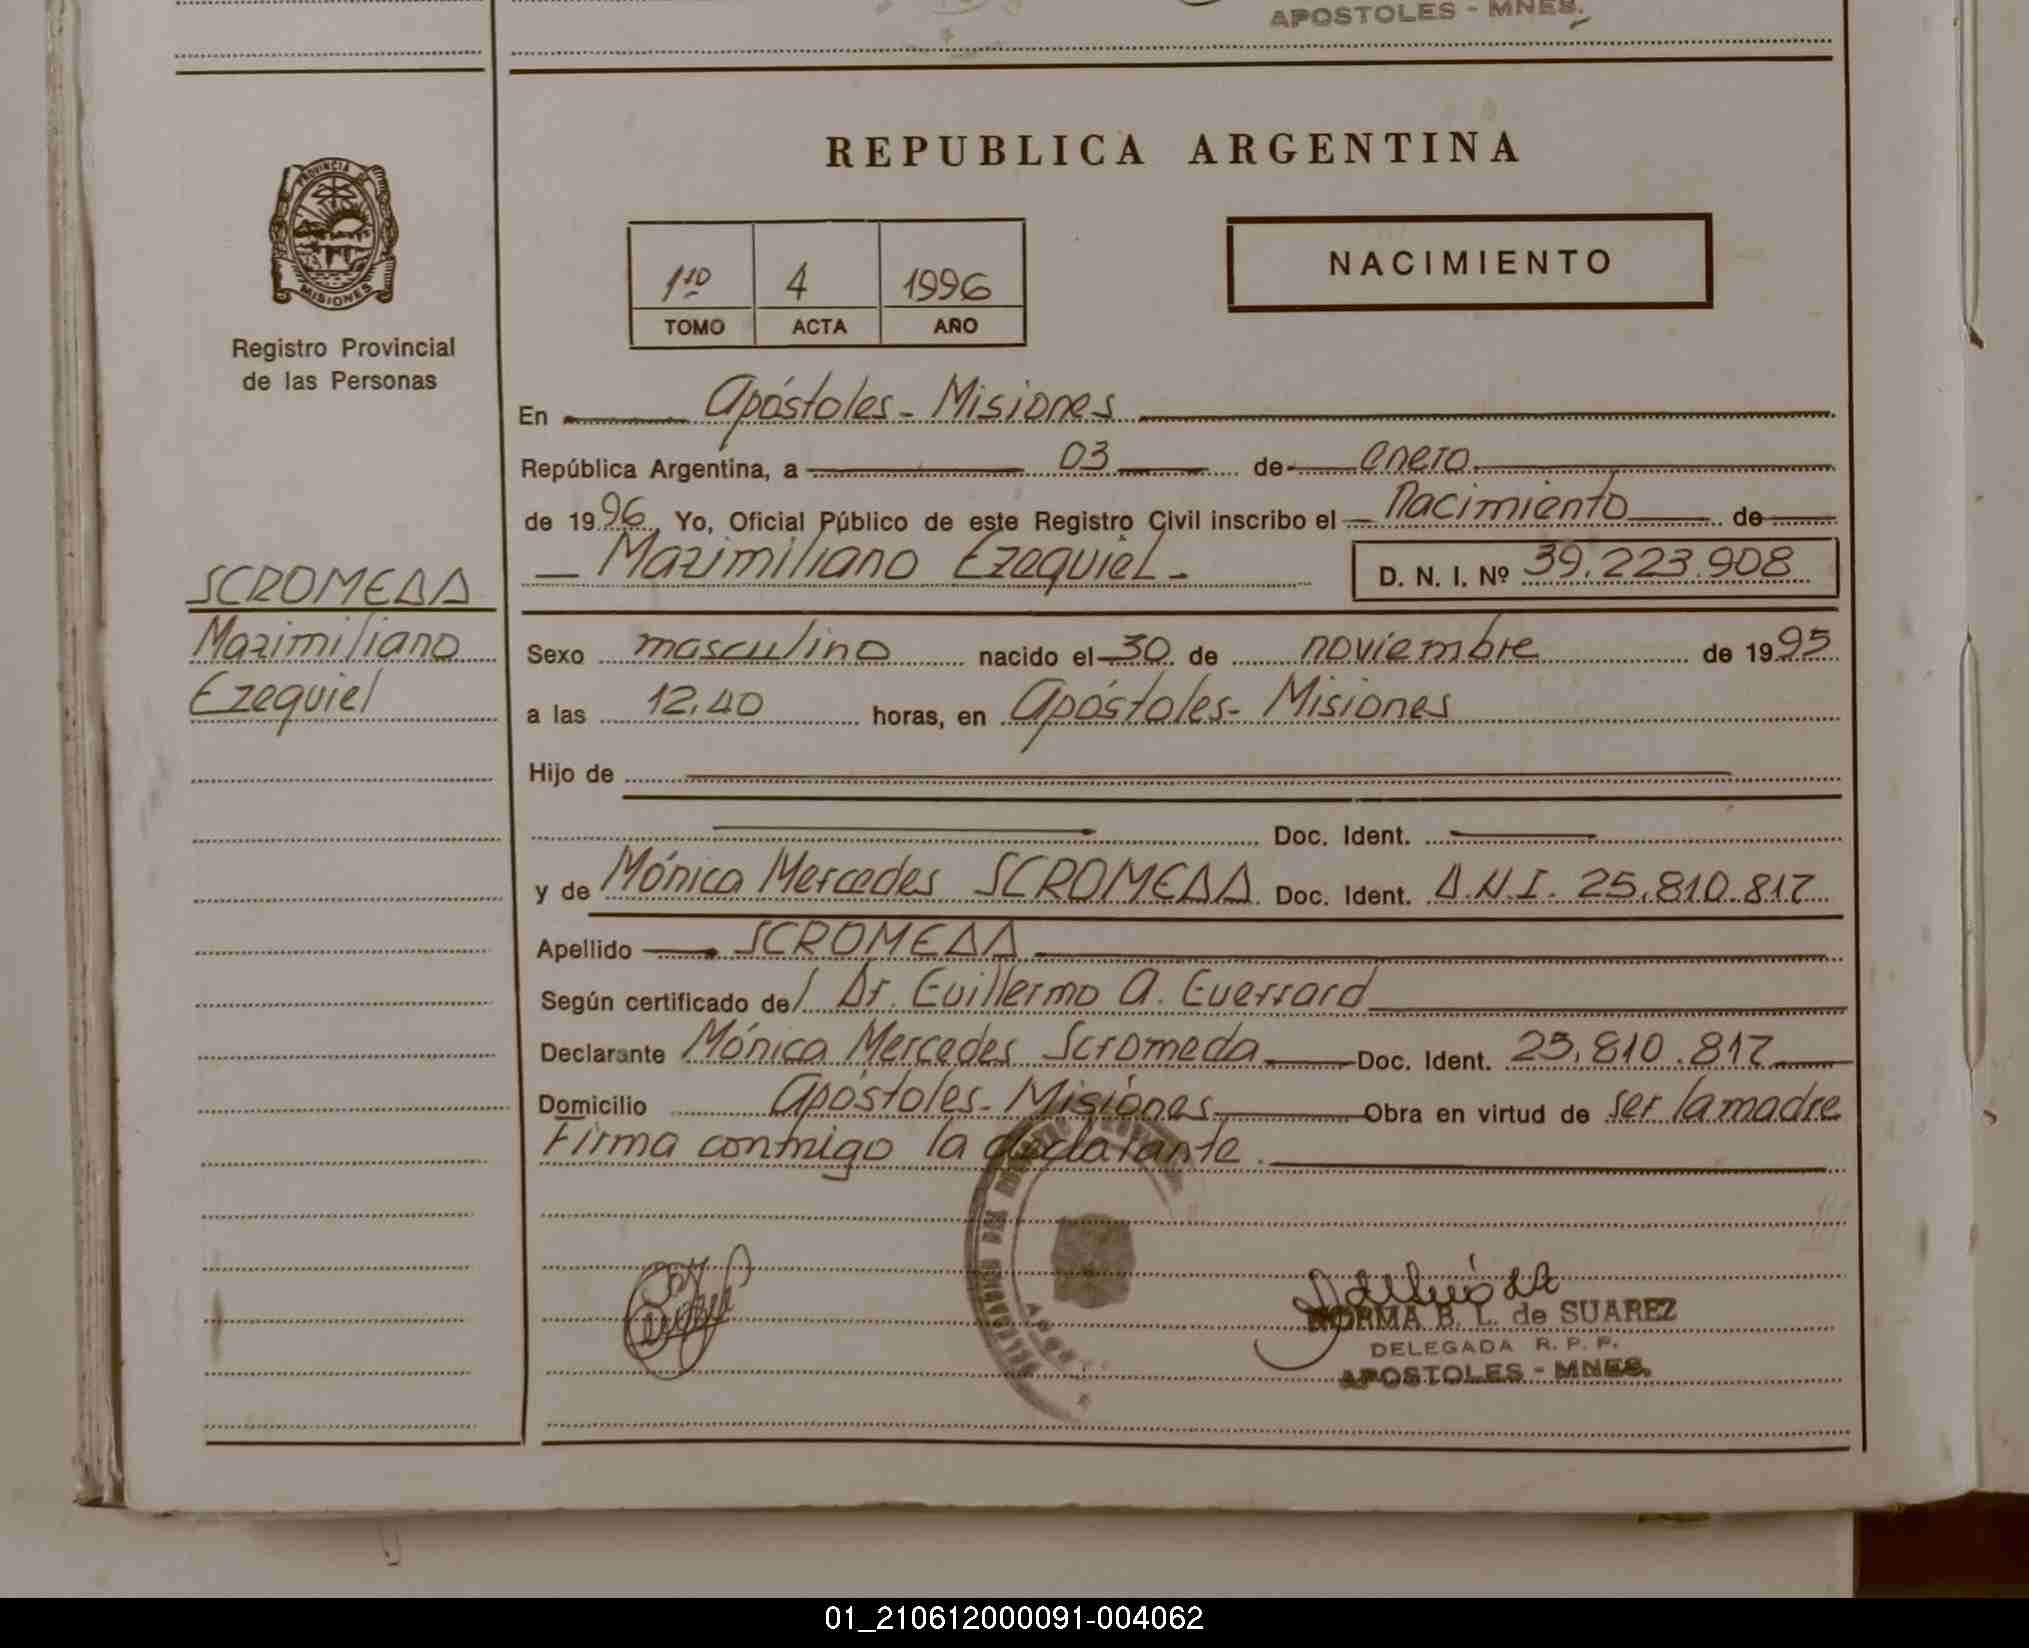 APOSTOLES - MNES.
REPUBLICA ARGENTINA
PROVINCIA DE
MISIONES
Registro Provincial
de las Personas
1ro 4 1996
TOMO ACTA AÑO
NACIMIENTO
En Apóstoles - Misiones
República Argentina, a 03 de enero
de 1996, Yo, Oficial Público de este Registro Civil inscribo el Nacimiento de
Maximiliano Ezequiel - D. N. I. Nº 39.223.908
SCROMEDA
Maximiliano
Ezequiel
Sexo masculino nacido el 30 de noviembre de 1995
a las 12.40 horas, en Apóstoles - Misiones
Hijo de
Doc. Ident.
y de Mónica Mercedes SCROMEDA Doc. Ident. D.N.I. 25.810.817
Apellido SCROMEDA
Según certificado de/ Dr. Guillermo A. Guerrard
Declarante Mónica Mercedes Scromeda Doc. Ident. 25.810.817
Domicilio Apóstoles - Misiones Obra en virtud de ser la madre
Firma conmigo la declarante.
NORMA B. L. de SUAREZ
DELEGADA R. P. P.
APOSTOLES - MNES.
01_210612000091-004062